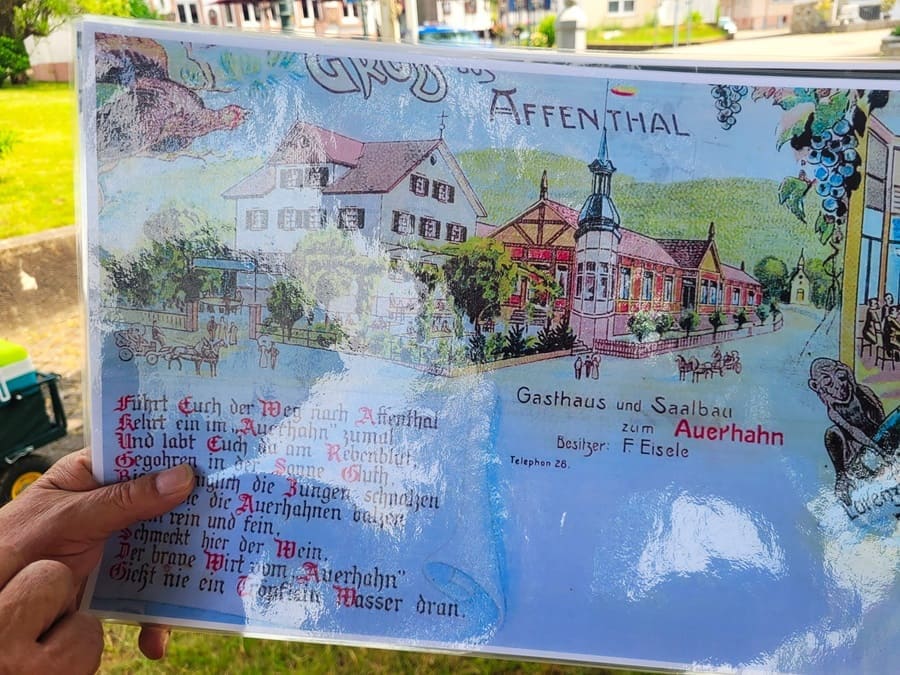 Gruß aus
AFFENTHAL
Führt Euch der Weg nach Affenthal
Kehrt ein im „Auerhahn" zumal
Und labt Euch da am Rebenblut,
Gegohren in der Sonne Gluth
die Zungen schnalzen
die Auerhahnen balzen
rein und fein,
Schmeckt hier der Wein,
Der brave Wirt vom „Auerhahn"
Gießt nie ein Tröpflein Wasser dran.
Gasthaus und Saalbau
zum Auerhahn
Besitzer: F. Eisele
Telephon 28.